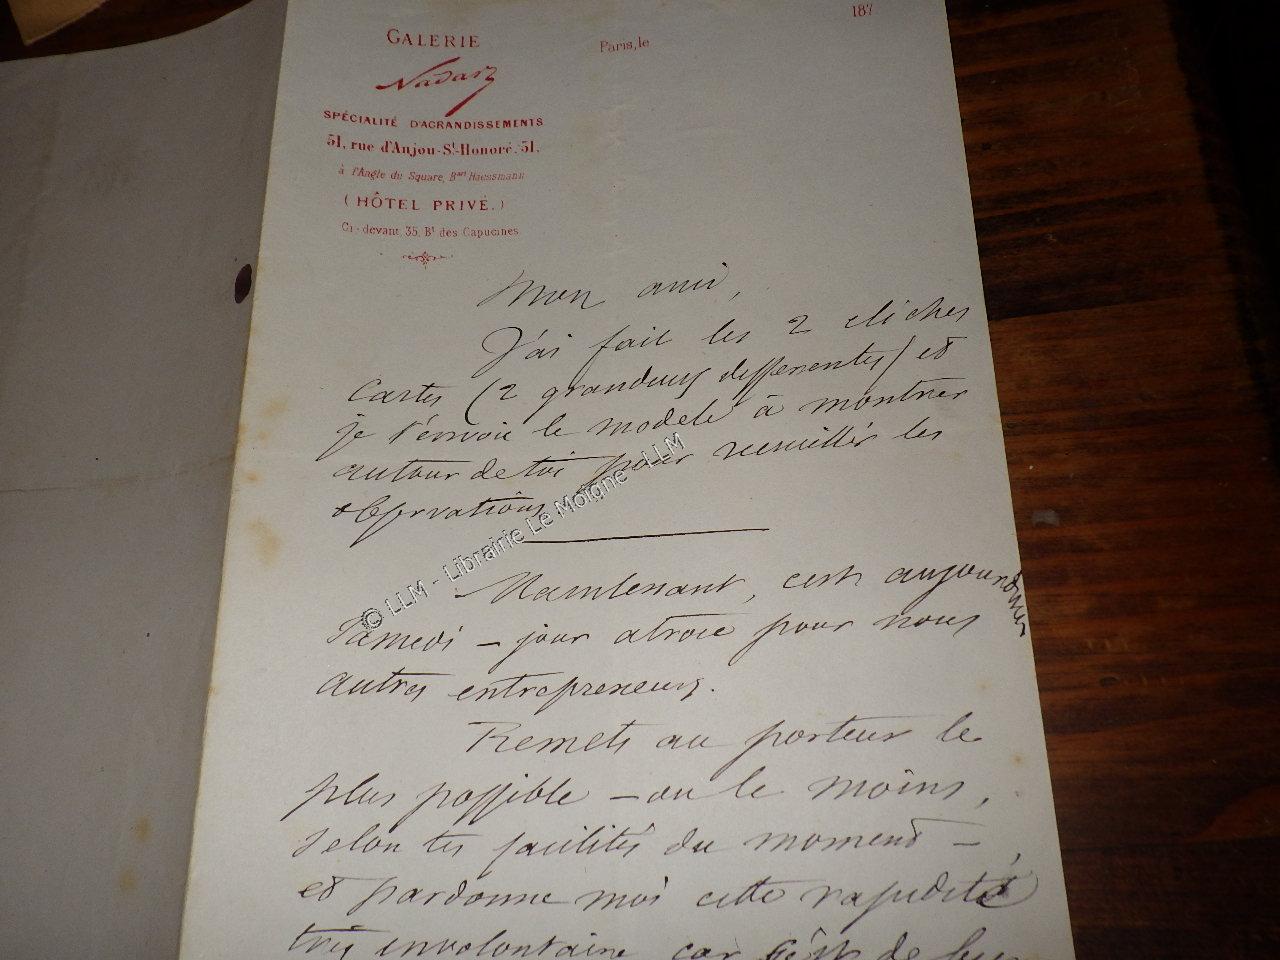 187
GALERIE
Paris, le
Nadar
SPÉCIALITÉ D'AGRANDISSEMENTS
51, rue d'Anjou-St-Honoré, 51,
à l'Angle du Square, Bart Haussmann
(HÔTEL PRIVÉ.)
Ci-devant, 35, Bt des Capucines
Mon ami,
J'ai fait les 2 clichés
Cartes (2 grandeurs differentes) et
je t'envoie le modele à montrer
autour de toi pour recueillir les
observations
Maintenant, c'est aujourd'hui
Samedi – jour atroce pour nous
autres entrepreneurs.
Remets au porteur le
plus possible – ou le moins,
selon tes facilités du moment –
et pardonne moi cette rapidité
très involontaire car c'est de
© LLM - Librairie Le Moigne - LLM